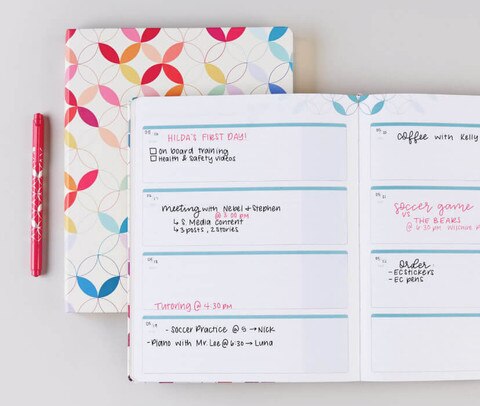 HILDA'S FIRST DAY!
on board training
Health & Safety videos
meeting with Nebel + Stephen
@ 3:00 pm
↳ S. Media content
↳ 3 posts, 2 stories
Tutoring @ 4:30 pm
- Soccer Practice @ 5 → Nick
- Piano with Mr. Lee @ 6:30 → Luna
coffee with Kelly
soccer game
vs
THE BEARS
@ 6:30 pm
order
- EC stickers
- EC pens